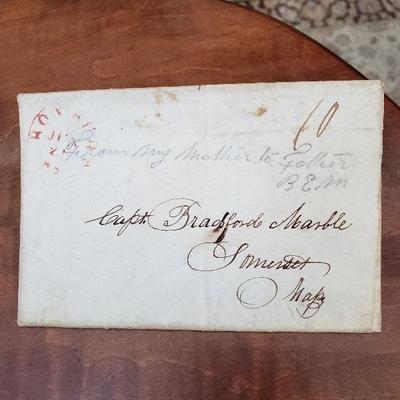 10
From my Mother to Father
BEM
Capt. Bradford Marble
Somerset
Mass